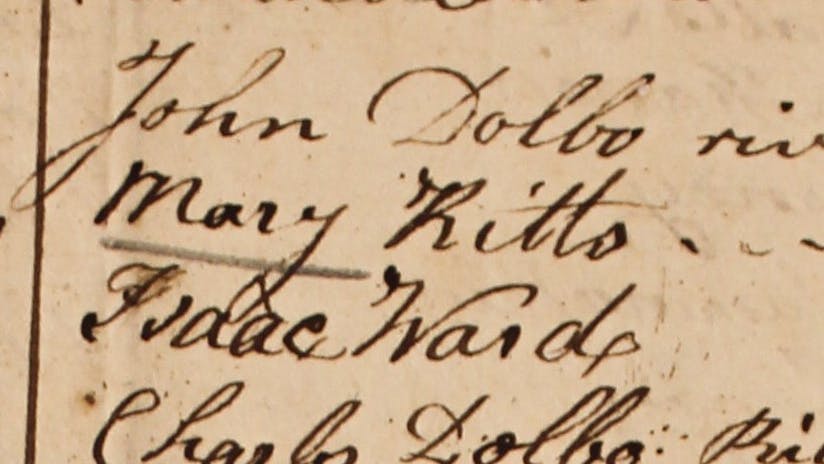 John Dolbo riv
Mary Kitto - - -
Isaac Ward
Charls Dolbo